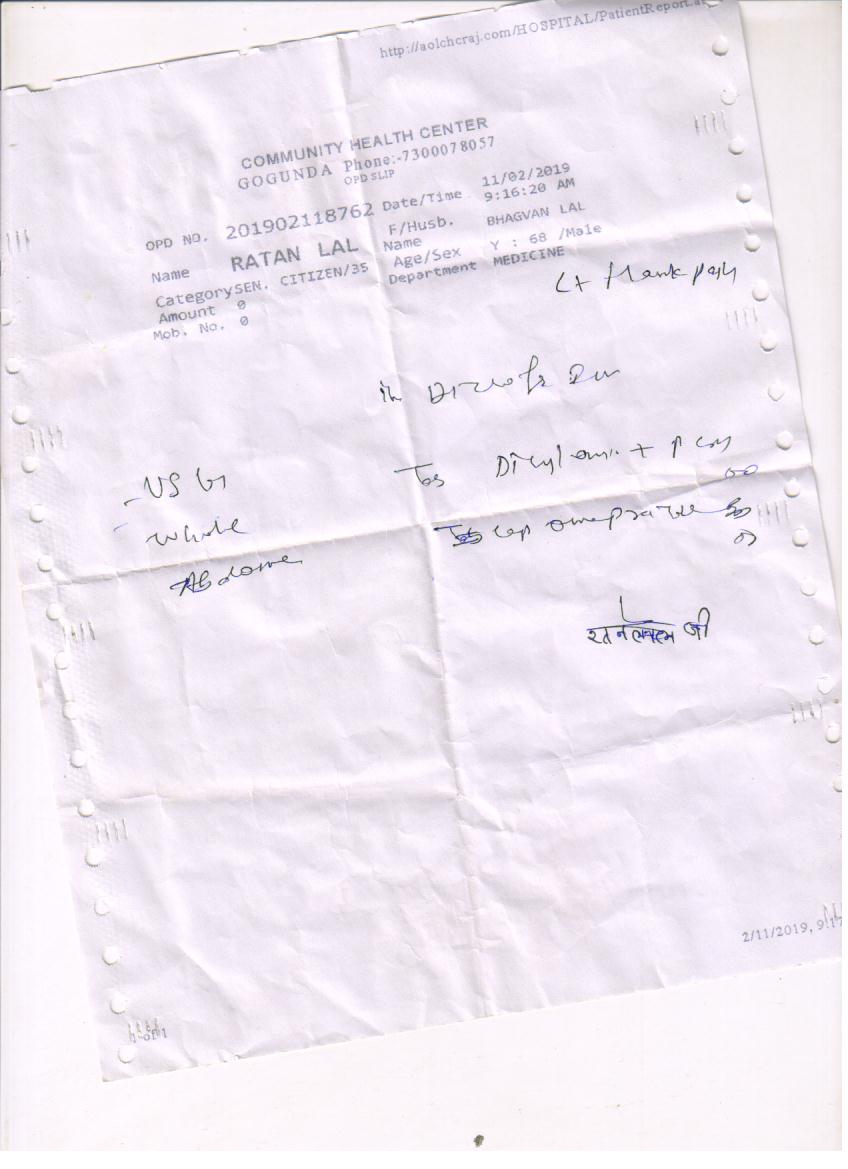 http://aolchcraj.com/HOSPITAL/PatientReport.as
COMMUNITY HEALTH CENTER
GOGUNDA Phone:-7300078057
OPD SLIP
OPD NO. 201902118762 Date/Time 11/02/2019 9:16:20 AM
Name RATAN LAL F/Husb. Name BHAGVAN LAL
CategorySEN. CITIZEN/35 Age/Sex Y : 68 /Male
Amount 0 Department MEDICINE
Mob. No. 0
Lt flank pain
USG
Whole
Abdome
Tab
cap omeprazole
जी
2/11/2019, 9:17